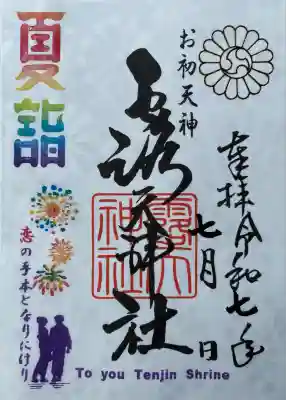 奉拝 令和七年
七月 日
お初天神
露天神社
露天神社
夏詣
恋の手本となりにけり
To you Tenjin Shrine